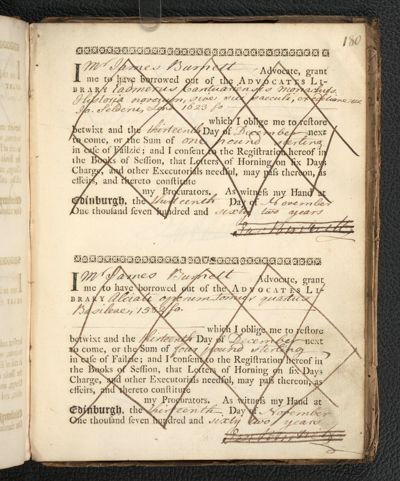 180
I Mr James Burnett Advocate, grant
me to have borrowed out of the ADVOCATES LI-
BRARY Eadmerus Cantuariensis monachus
Historia novorum, sive sui saeculi,
Jo. Seldeni, Lond 1623 fo
which I oblige me to restore
betwixt and the thirteenth Day of December next
to come, or the Sum of one pound sterling
in case of Failzie; and I consent to the Registration hereof in
the Books of Session, that Letters of Horning on six Days
Charge, and other Executorials needful, may pass thereon, as
effeirs, and thereto constitute
my Procurators. As witness my Hand at
Edinburgh, the thirteenth Day of November
One thousand seven hundred and sixty two years
I Mr James Burnett Advocate, grant
me to have borrowed out of the ADVOCATES LI-
BRARY Alciati operum tomus quartus
Basileae, fo.
which I oblige me to restore
betwixt and the thirteenth Day of December next
to come, or the Sum of four pound sterling
in case of Failzie; and I consent to the Registration hereof in
the Books of Session, that Letters of Horning on six Days
Charge, and other Executorials needful, may pass thereon, as
effeirs, and thereto constitute
my Procurators. As witness my Hand at
Edinburgh, the thirteenth Day of November
One thousand seven hundred and sixty two years